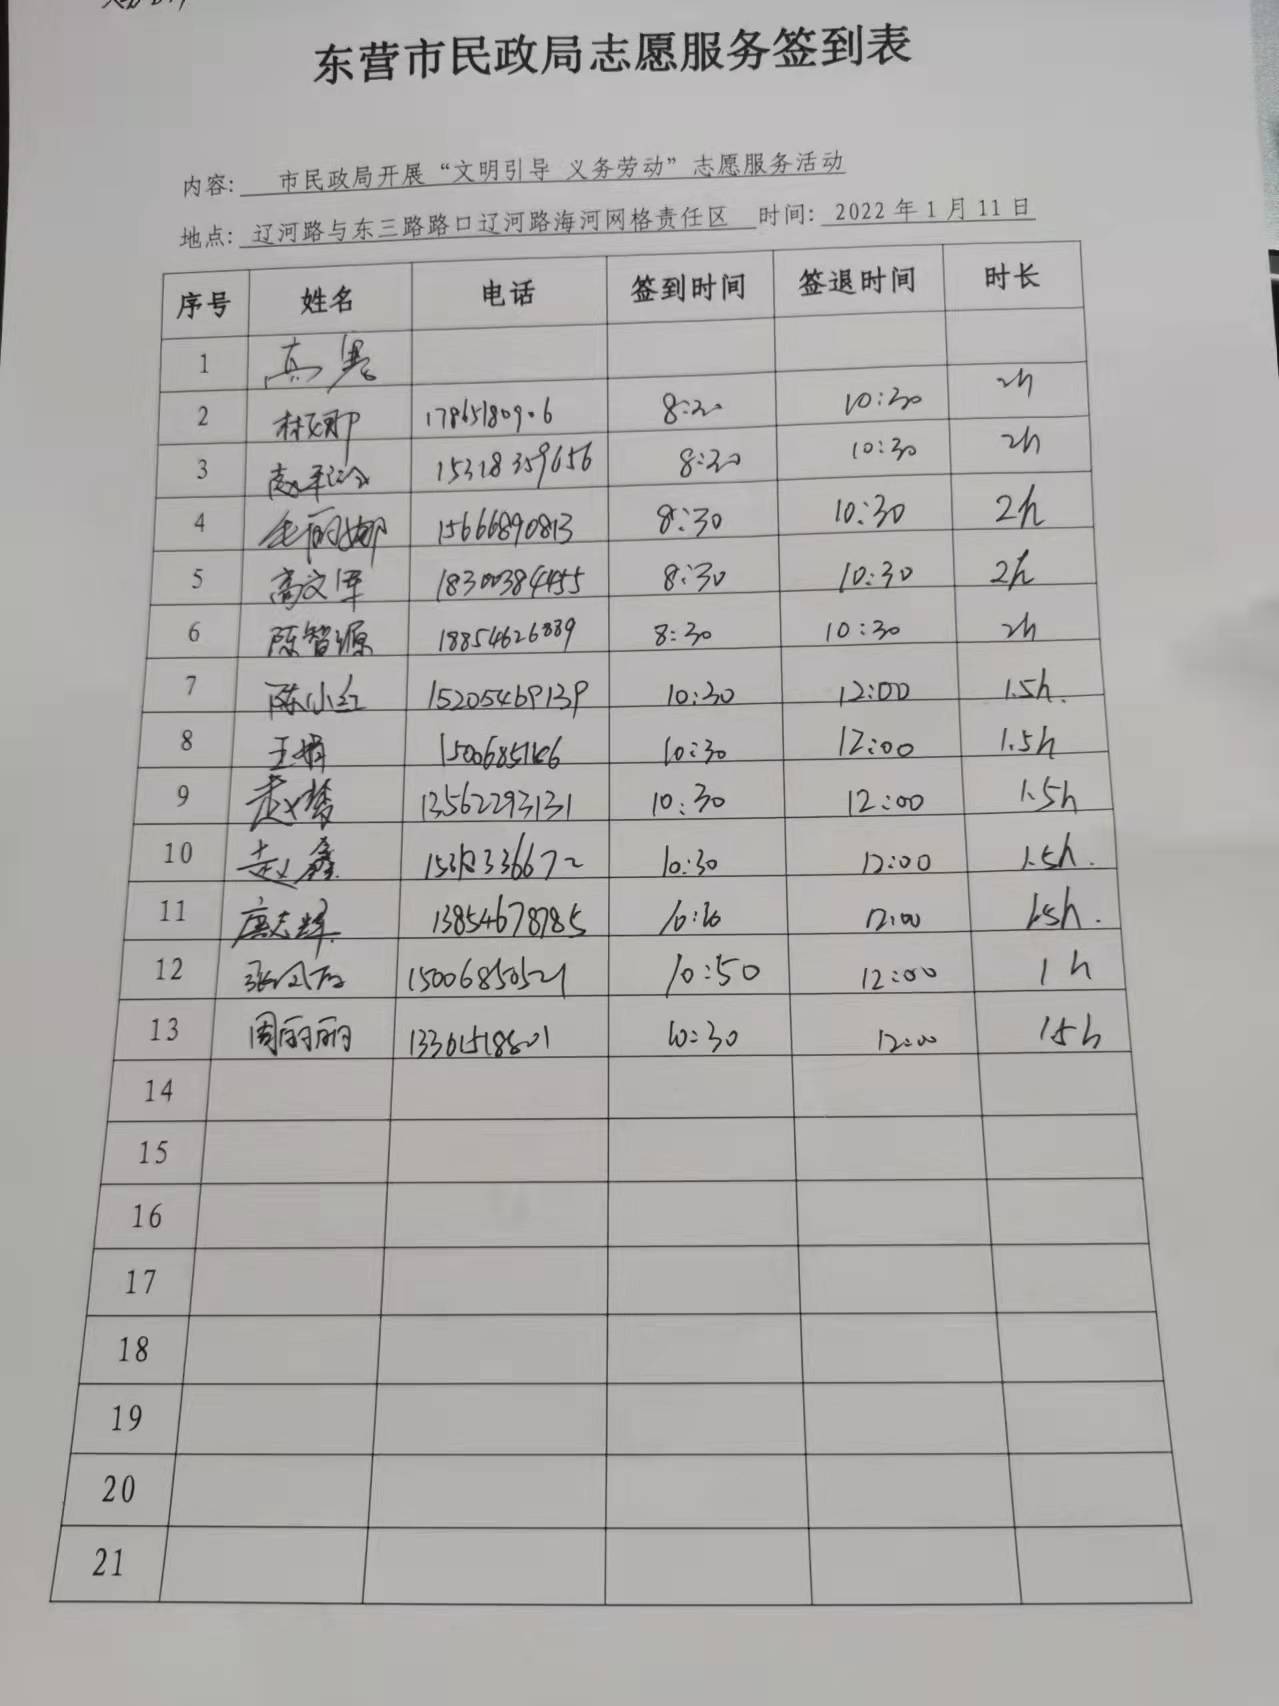 东营市民政局志愿服务签到表
内容: 市民政局开展“文明引导 义务劳动”志愿服务活动
地点: 辽河路与东三路路口辽河路海河网格责任区 时间: 2022年1月11日
序号 姓名 电话 签到时间 签退时间 时长
1
2 林娜 17865180906 8:30 10:30 2h
3 15318359656 8:30 10:30 2h
4 毛丽娜 15666890813 8:30 10:30 2h
5 高文军 18300384455 8:30 10:30 2h
6 陈智源 18854626889 8:30 10:30 2h
7 陈小红 15205469139 10:30 12:00 1.5h.
8 王娟 10:30 12:00 1.5h
9 赵梦 13562293131 10:30 12:00 1.5h
10 赵鑫 10:30 12:00 1.5h.
11 唐志辉 13854678785 10:30 12:00 1.5h.
12 15006850521 10:50 12:00 1h
13 周丽丽 10:30 12:00 1.5h
14
15
16
17
18
19
20
21